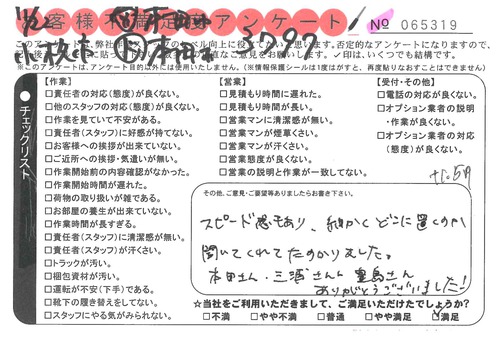 お客様不満足度アンケート
№ 065319
11/22
3797
※このアンケートは、アンケート目的以外には使用いたしません。(※情報保護シールは1度はがすと、再度貼りなおすことはできません)
●チェックリスト
【作業】
□責任者の対応(態度)が良くない。
□他のスタッフの対応(態度)が良くない。
□作業を見ていて不安がある。
□責任者(スタッフ)に好感が持てない。
□お客様への挨拶が出来ていない。
□ご近所への挨拶・気遣いが無い。
□作業開始前の内容確認がなかった。
□作業開始時間が遅れた。
□荷物の取り扱いが雑である。
□お部屋の養生が出来ていない。
□作業時間が長すぎる。
□責任者(スタッフ)に清潔感が無い。
□責任者(スタッフ)が汗くさい。
□トラックが汚い。
□梱包資材が汚い。
□運転が不安(下手)である。
□靴下の履き替えをしてない。
□スタッフにやる気がみられない。
【営業】
□見積もり時間に遅れた。
□見積もり時間が長い。
□営業マンに清潔感が無い。
□営業マンが煙草くさい。
□営業マンが汗くさい。
□営業態度が良くない。
□営業の説明と作業が一致してない。
【受付・その他】
□電話の対応が良くない。
□オプション業者の説明・作業が良くない。
□オプション業者の対応(態度)が良くない。
その他、ご意見・ご要望等ありましたらお書き下さい。
スピード感もあり、細かくどこに置くのか
聞いてくれてたのかりました。
本田さん・三浦さん
ありがとうございました!
☆当社をご利用いただきまして、ご満足いただけたでしょうか?
□不満 □やや不満 □普通 □やや満足 □満足